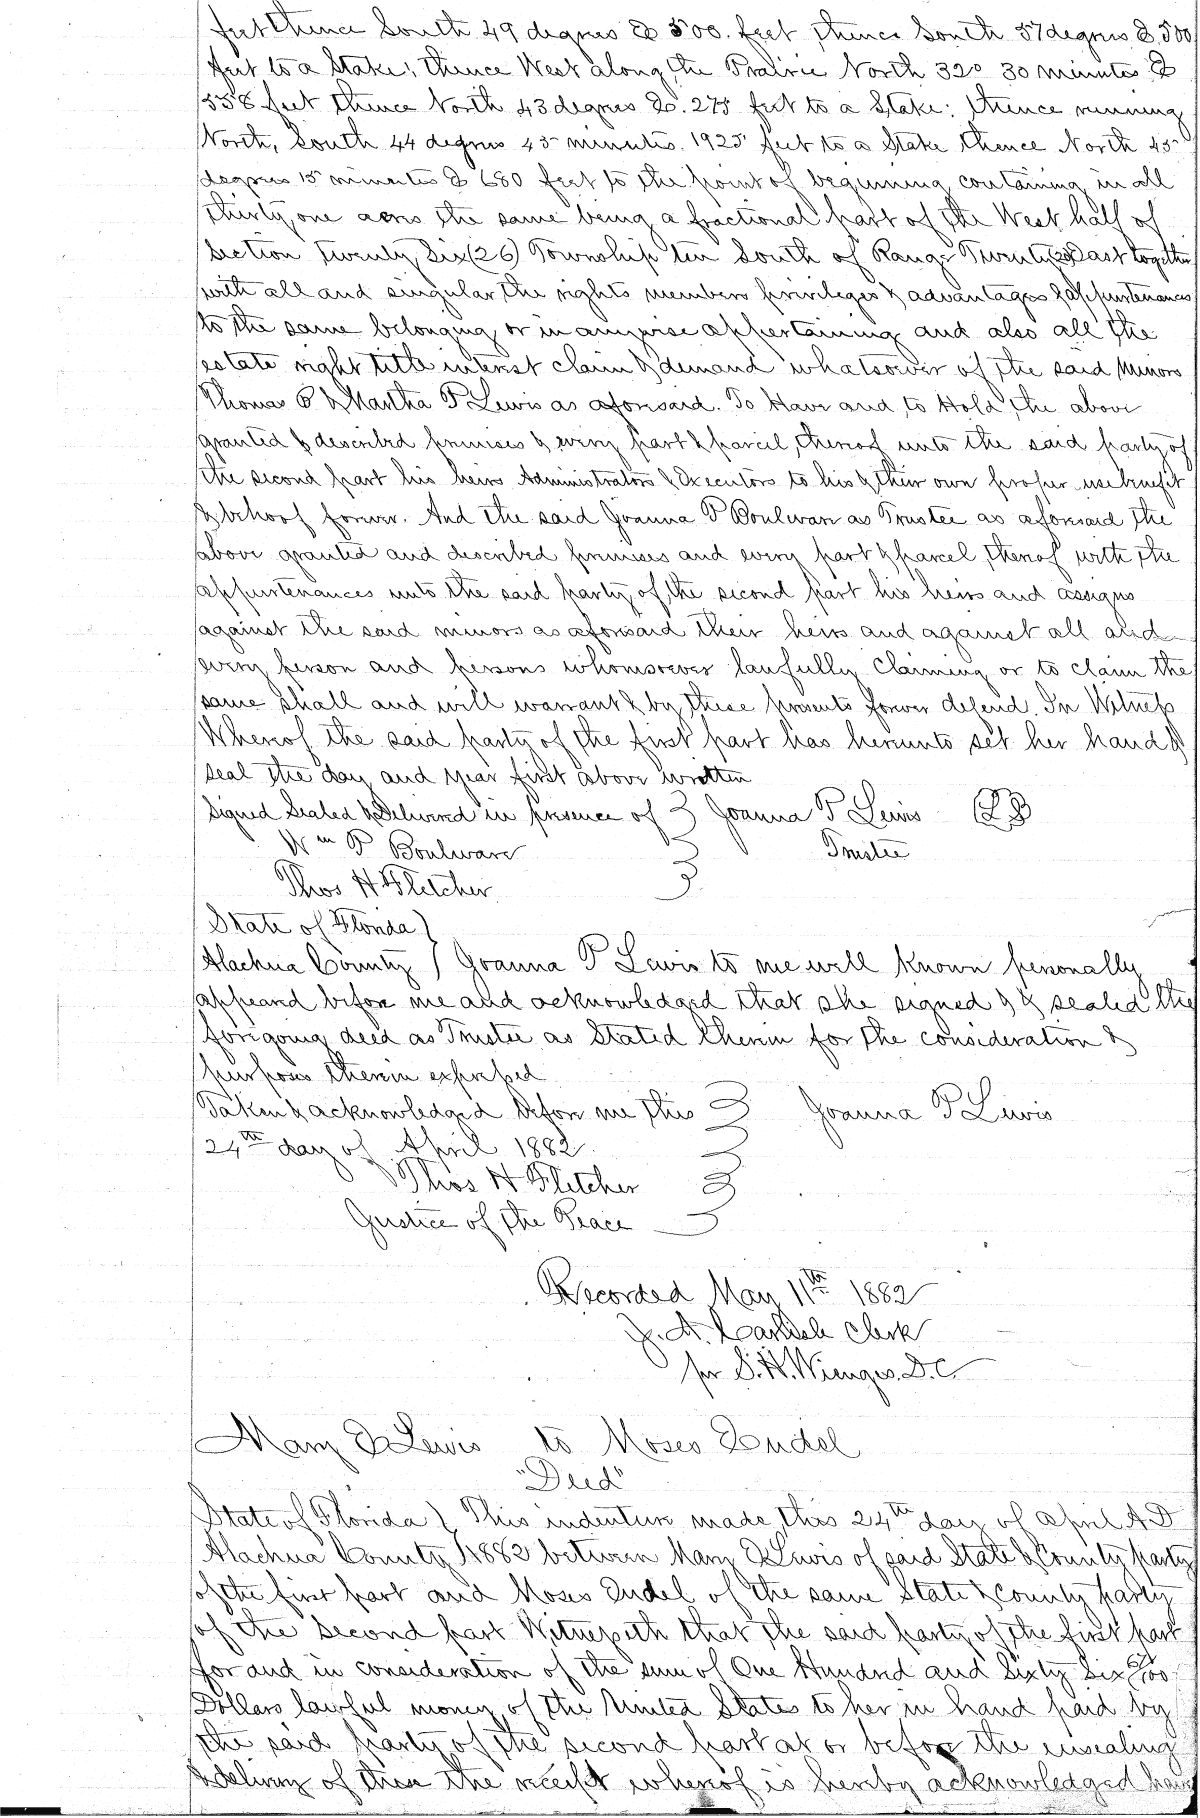 feet thence South 49 degrees E 500. feet, thence South 57 degrees E 500
feet to a Stake; thence West along the Prairie North 32° 30 minutes E
558 feet thence North 43 degrees E. 275 feet to a Stake: thence running
North, South 44 degrees 45 minutes. 1925 feet to a Stake thence North 45
degrees 15 minutes E 680 feet to the point of beginning containing in all
thirty one acres the same being a fractional part of the West half of
Section Twenty Six (26) Township ten South of Range Twenty (20) East together
with all and singular the rights members privileges & advantages & appurtenances
to the same belonging or in anywise appertaining and also all the
estate right title interest claim & demand whatsoever of the said Minors
Thomas & Martha P Lewis as aforesaid. To Have and to Hold the above
granted & described premises & every part & parcel, thereof unto the said party of
the second part his heirs Administrators & Executors to his & their own proper use benefit
& behoof forever. And the said Joanna P Boulware as Trustee as aforesaid the
above granted and described premises and every part & parcel, thereof with the
appurtenances unto the said party of the second part his heirs and assigns
against the said minors as aforesaid their heirs and against all and
every person and persons whomsoever lawfully claiming or to claim the
same shall and will warrant & by these presents forever defend. In Witness
Whereof the said party of the first part has hereunto set her hand &
seal the day and year first above written
Signed Sealed & Delivered in presence of } Joanna P Lewis (LS)
Wm P Boulware Trustee
Thos H Fletcher
State of Florida }
Alachua County } Joanna P Lewis to me well known personally
appeared before me and acknowledged that she signed & & sealed the
foregoing deed as Trustee as Stated therein for the consideration &
purposes therein expressed
Taken & acknowledged before me this } Joanna P Lewis
24th day of April 1882
Thos H Fletcher
Justice of the Peace
Recorded May 11th 1882
J. A. Carlisle Clerk
per S. H. Wienges. D. C
Mary E Lewis to Moses Endel
"Deed"
State of Florida } This indenture made this 24th day of April A.D
Alachua County } 1882 between Mary E Lewis of said State & County party
of the first part and Moses Endel of the same State & County party
of the Second part Witnesseth that the said party of the first part
for and in consideration of the sum of One Hundred and Sixty Six /100
Dollars lawful money of the United States to her in hand paid by
the said party of the second part at or before the ensealing
& delivery of these the receipt whereof is hereby acknowledged have